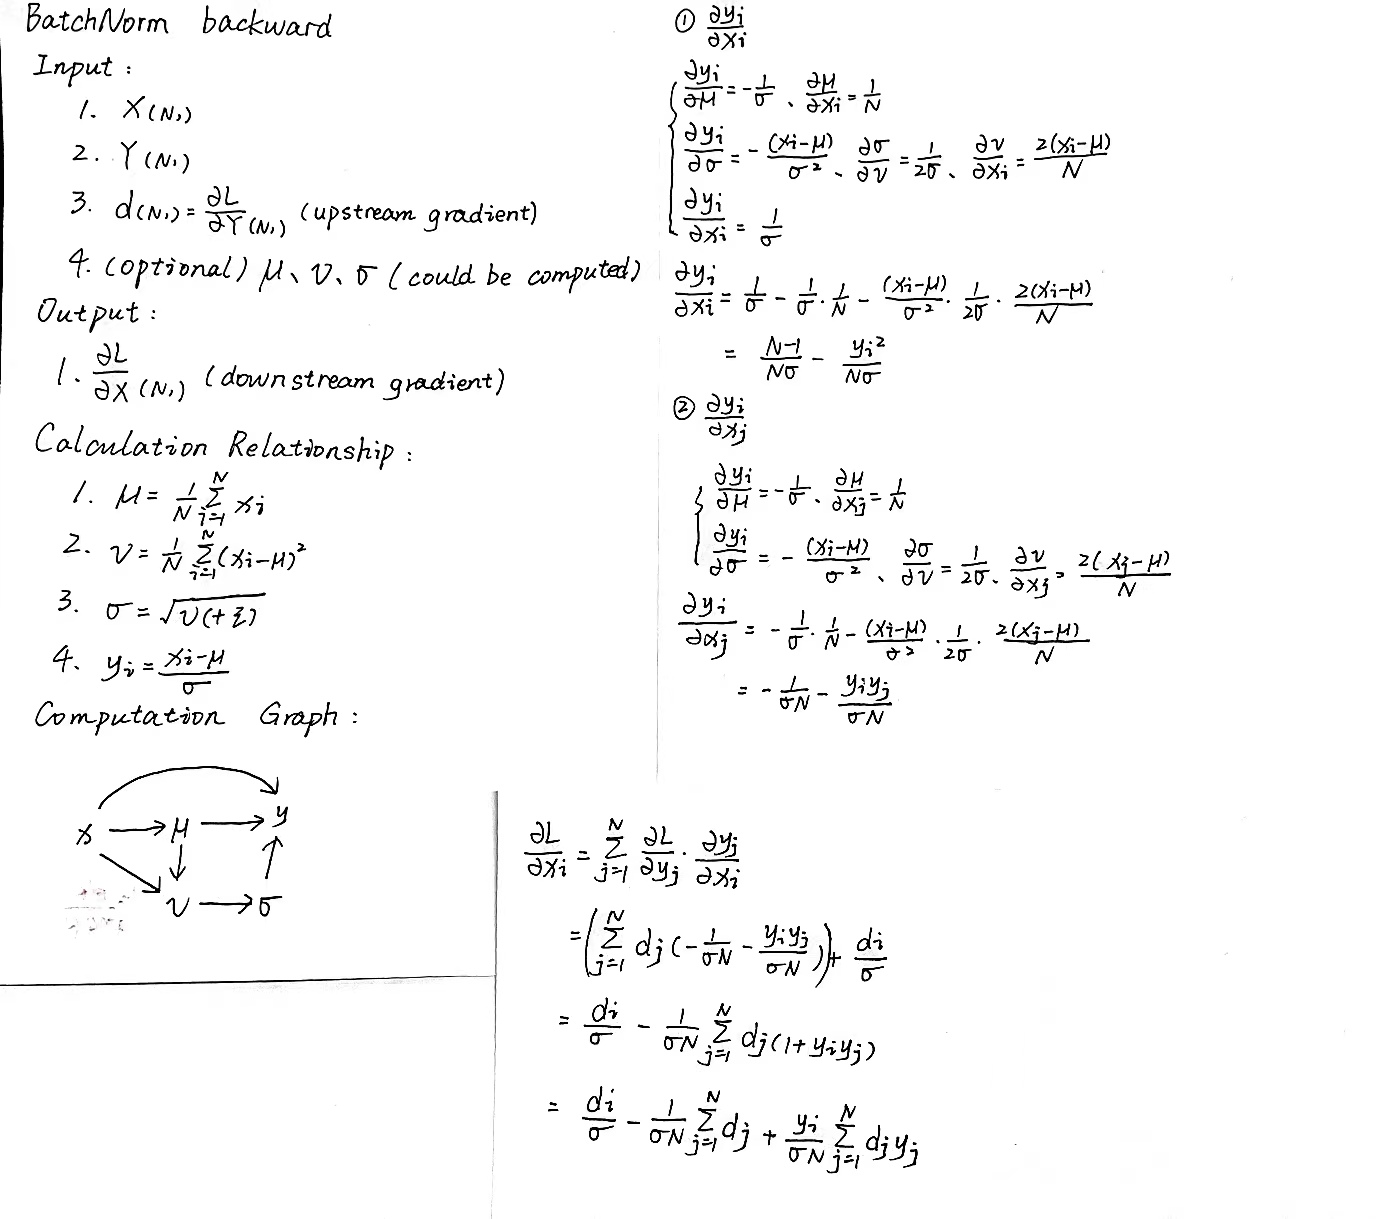 BatchNorm backward
Input :
1. X(N,)
2. Y(N,)
3. d(N,) = ∂L/∂Y (N,) (upstream gradient)
4. (optional) μ、v、σ (could be computed)
Output :
1. ∂L/∂X (N,) (downstream gradient)
Calculation Relationship :
1. μ = 1/N Σ_{i=1}^{N} xi
2. v = 1/N Σ_{i=1}^{N} (xi-μ)²
3. σ = √(v(+ξ))
4. yi = (xi-μ)/σ
Computation Graph :
x → μ → y
v → σ
① ∂yi/∂xi
∂yi/∂μ = -1/σ 、 ∂μ/∂xi = 1/N
∂yi/∂σ = - (xi-μ)/σ² 、 ∂σ/∂v = 1/2σ 、 ∂v/∂xi = 2(xi-μ)/N
∂yi/∂xi = 1/σ
∂yi/∂xi = 1/σ - 1/σ · 1/N - (xi-μ)/σ² · 1/2σ · 2(xi-μ)/N
= (N-1)/Nσ - yi²/Nσ
② ∂yi/∂xj
∂yi/∂μ = -1/σ 、 ∂μ/∂xj = 1/N
∂yi/∂σ = - (xi-μ)/σ² 、 ∂σ/∂v = 1/2σ 、 ∂v/∂xj = 2(xj-μ)/N
∂yi/∂xj = - 1/σ · 1/N - (xi-μ)/σ² · 1/2σ · 2(xj-μ)/N
= - 1/σN - yiyj/σN
∂L/∂xi = Σ_{j=1}^{N} ∂L/∂yj · ∂yj/∂xi
= (Σ_{j=1}^{N} dj (-1/σN - yiyj/σN)) + di/σ
= di/σ - 1/σN Σ_{j=1}^{N} dj(1+yiyj)
= di/σ - 1/σN Σ_{j=1}^{N} dj + yi/σN Σ_{j=1}^{N} djyj